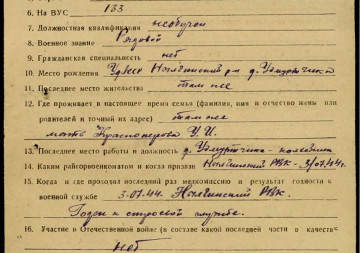 6. На ВУС 133
7. Должностная квалификация необучен
8. Военное звание Рядовой
9. Гражданская специальность нет
10. Место рождения р-н д.
11. Последнее место жительства там же
12. Где проживает в настоящее время семья (фамилия, имя и отчество жены или
родителей и точный их адрес) там же
мать У.И.
13. Последнее место работы и должность д. колхозник
14. Каким райгорвоенкоматом и когда призван РВК - 3/07.44г.
15. Когда и где проходил последний раз медкомиссию и результат годности к
военной службе 3.07.44. РВК.
Годен к строевой службе.
16. Участие в Отечественной войне (в составе какой последней части в качестве
Нет